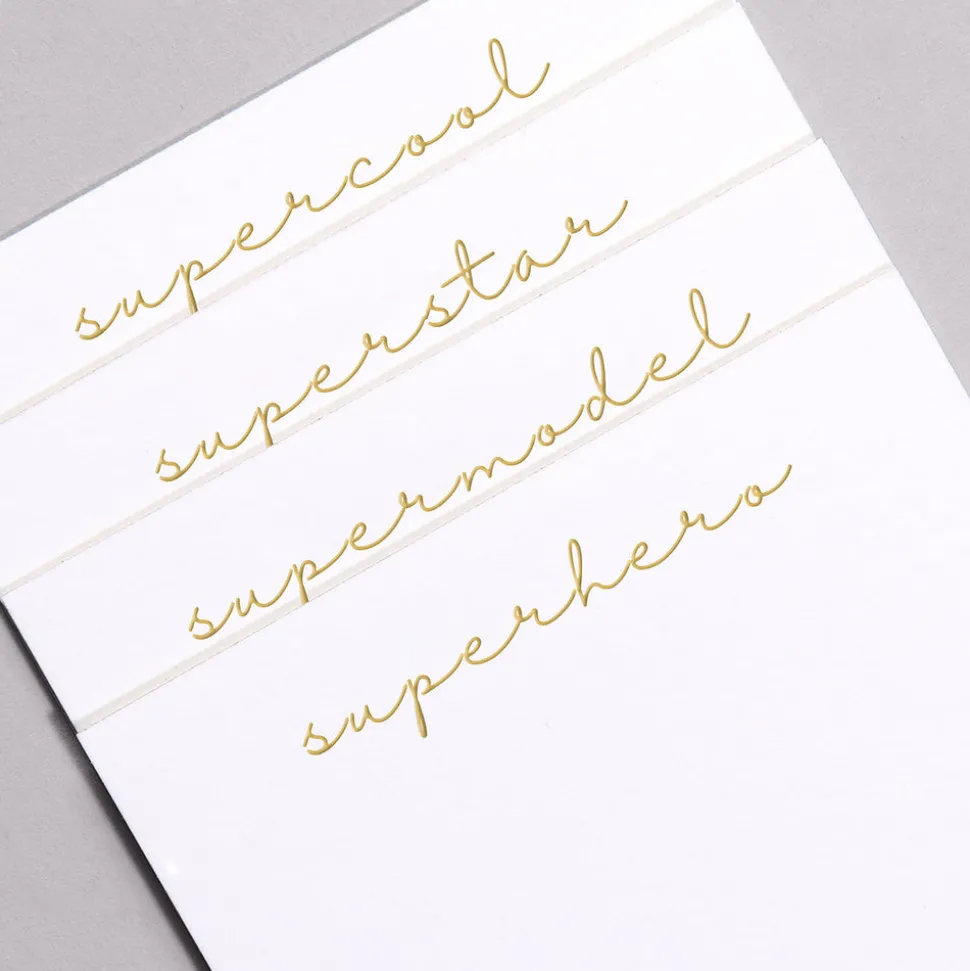 supercool
superstar
supermodel
superhero